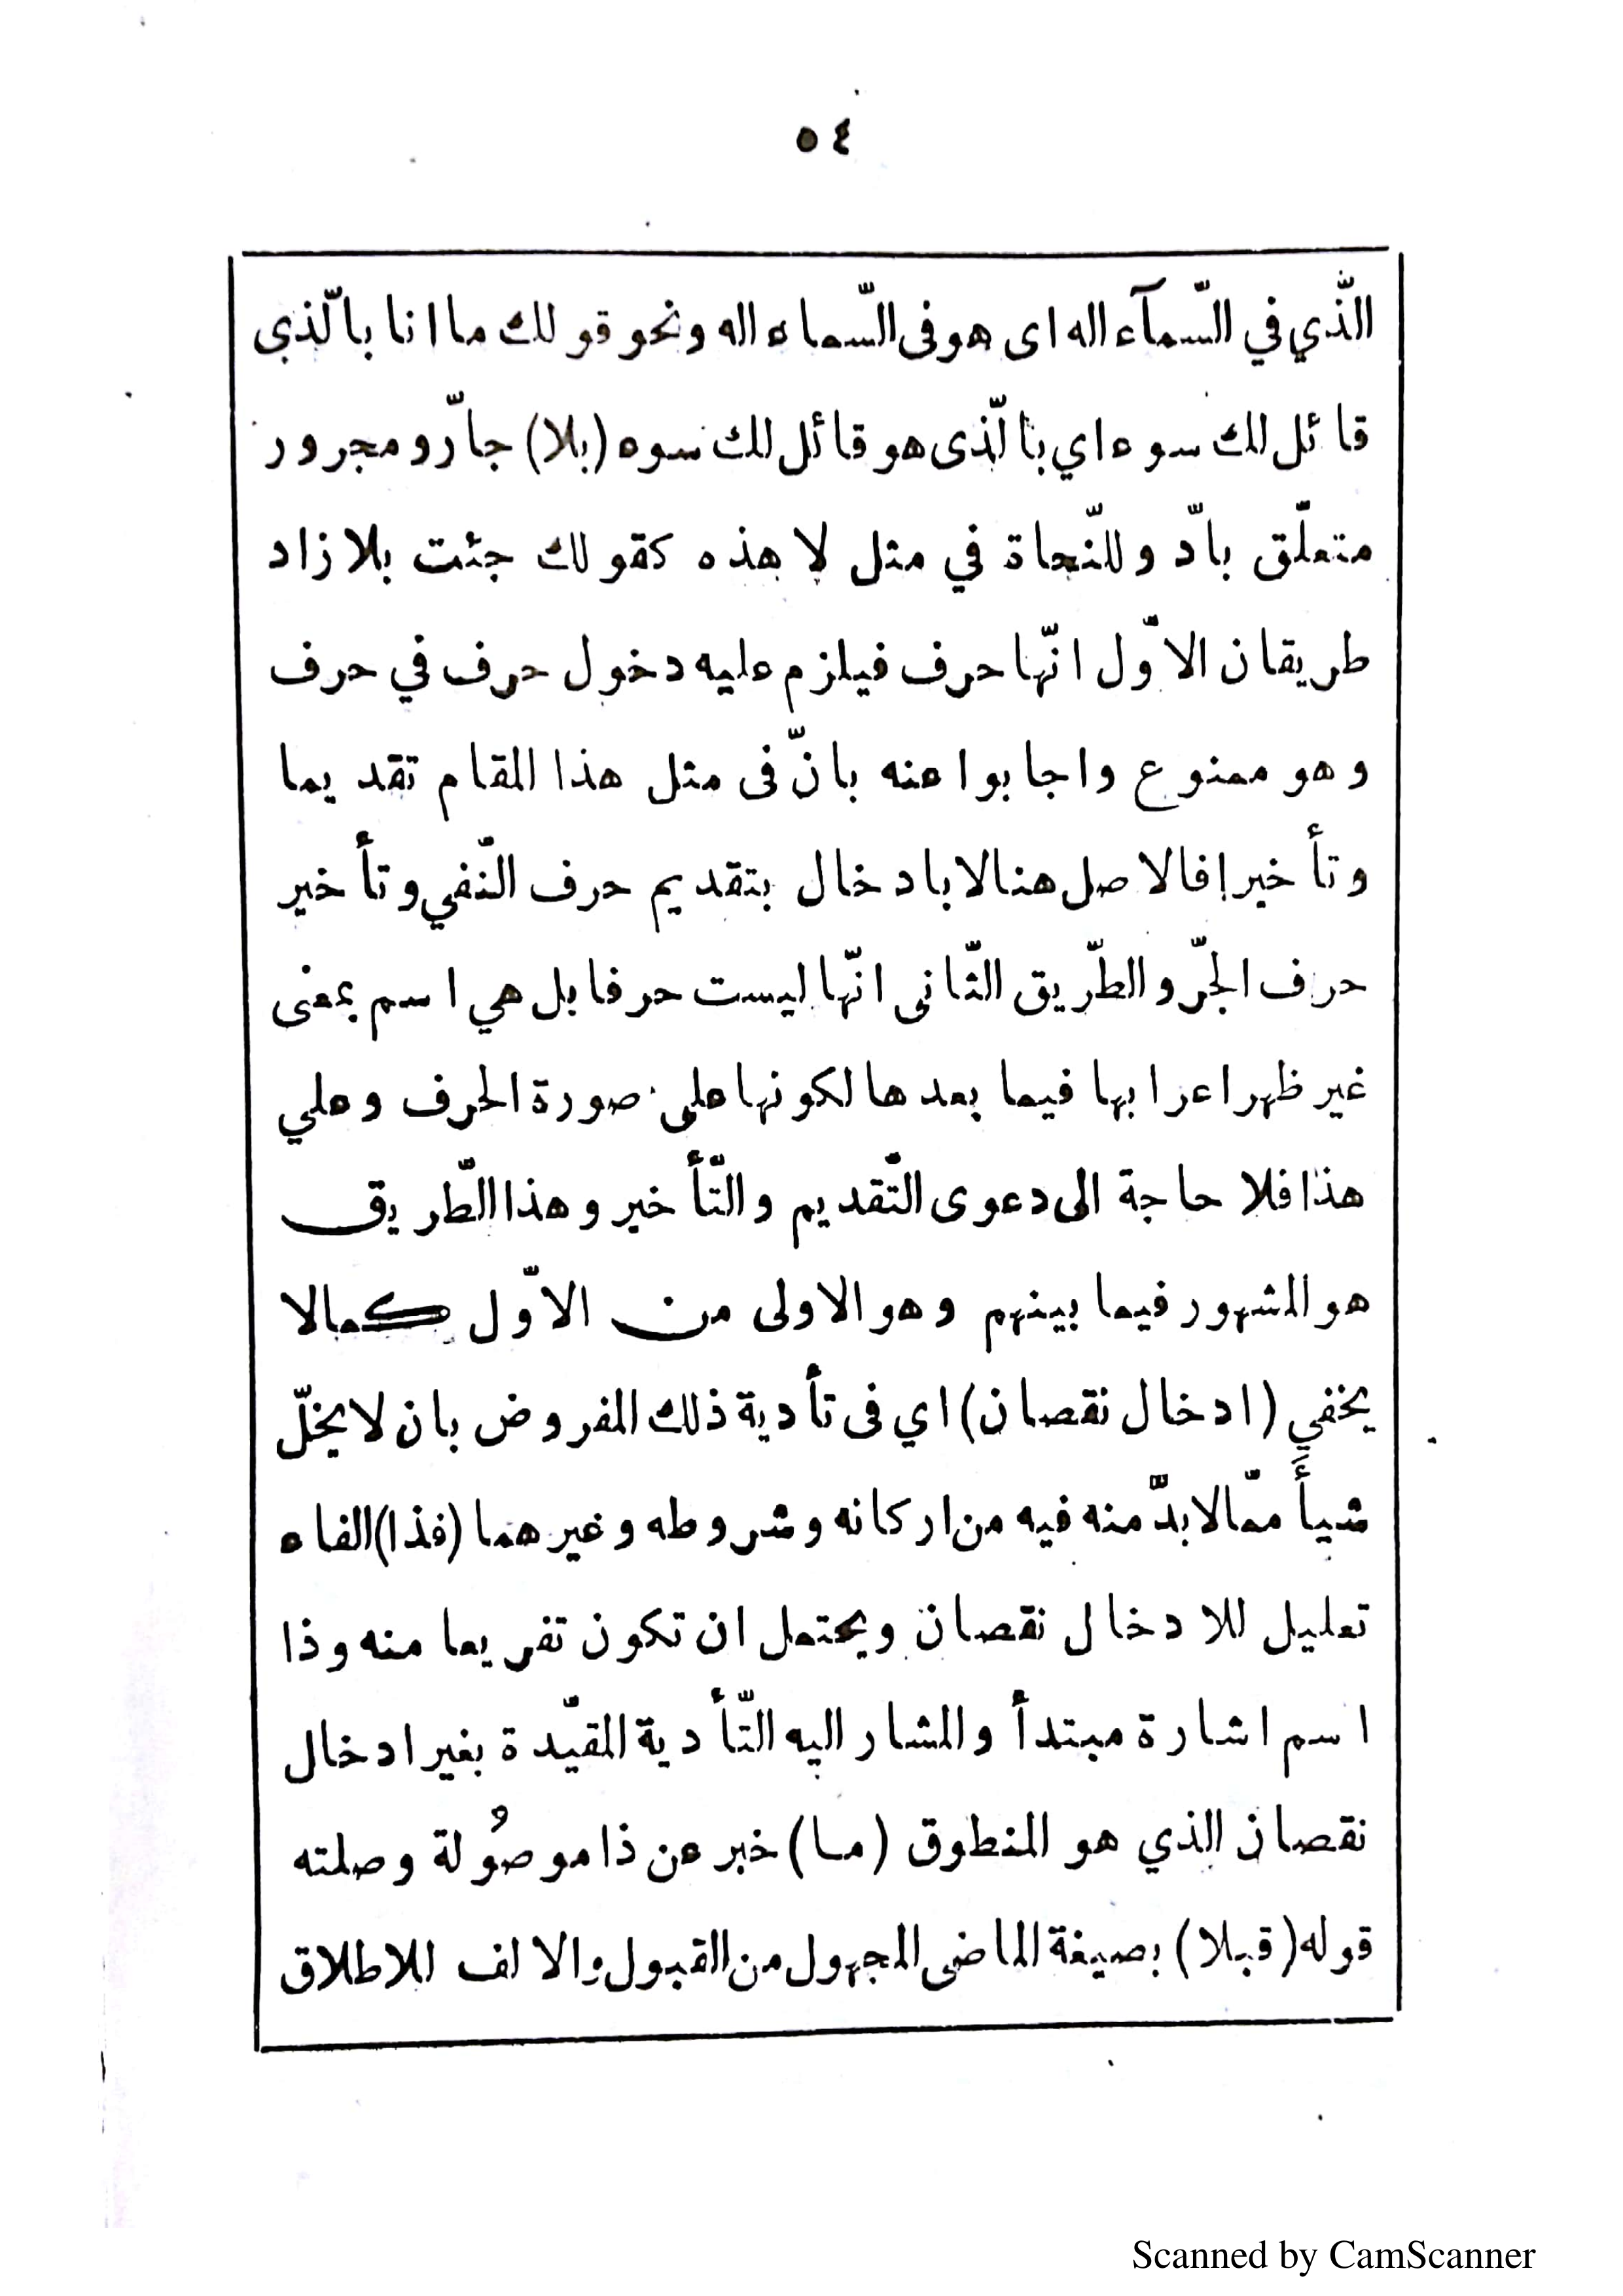 ٥٤
الّذي في السّمآء اله اى هو فى السّماء اله ونحو قولك ما انا بالّذى
قائل لك سوء اي بالّذى هو قائل لك سوه (بلا) جارّ ومجرور
متعلّق بادّ وللنّحاة في مثل لا هذه كقولك جئت بلا زاد
طريقان الاوّل انّها حرف فيلزم عليه دخول حرف في حرف
وهو ممنوع واجابوا عنه بانّ فى مثل هذا المقام تقديما
وتأخيرا فالاصل هنا لا بادخال بتقديم حرف النّفي وتأخير
حرف الجرّ والطّريق الثّانى انّها ليست حرفا بل هي اسم بمعنى
غير ظهر اعرابها فيما بعدها لكونها على صورة الحرف وعلي
هذا فلا حاجة الى دعوى التّقديم والتّأخير وهذا الطّريق
هو المشهور فيما بينهم وهو الاولى من الاوّل كما لا
يخفي (ادخال نقصان) اي فى تأدية ذلك المفروض بان لا يخلّ
شيأً ممّا لا بدّ منه فيه من اركانه وشروطه وغيرهما (فذا) الفاء
تعليل للادخال نقصان ويحتمل ان تكون تفريعا منه وذا
اسم اشارة مبتدأ والمشار اليه التّأدية المقيّدة بغير ادخال
نقصان الذي هو المنطوق (ما) خبر عن ذا موصُولة وصلته
قوله (قبلا) بصيغة الماضى المجهول من القبول والالف للاطلاق
Scanned by CamScanner